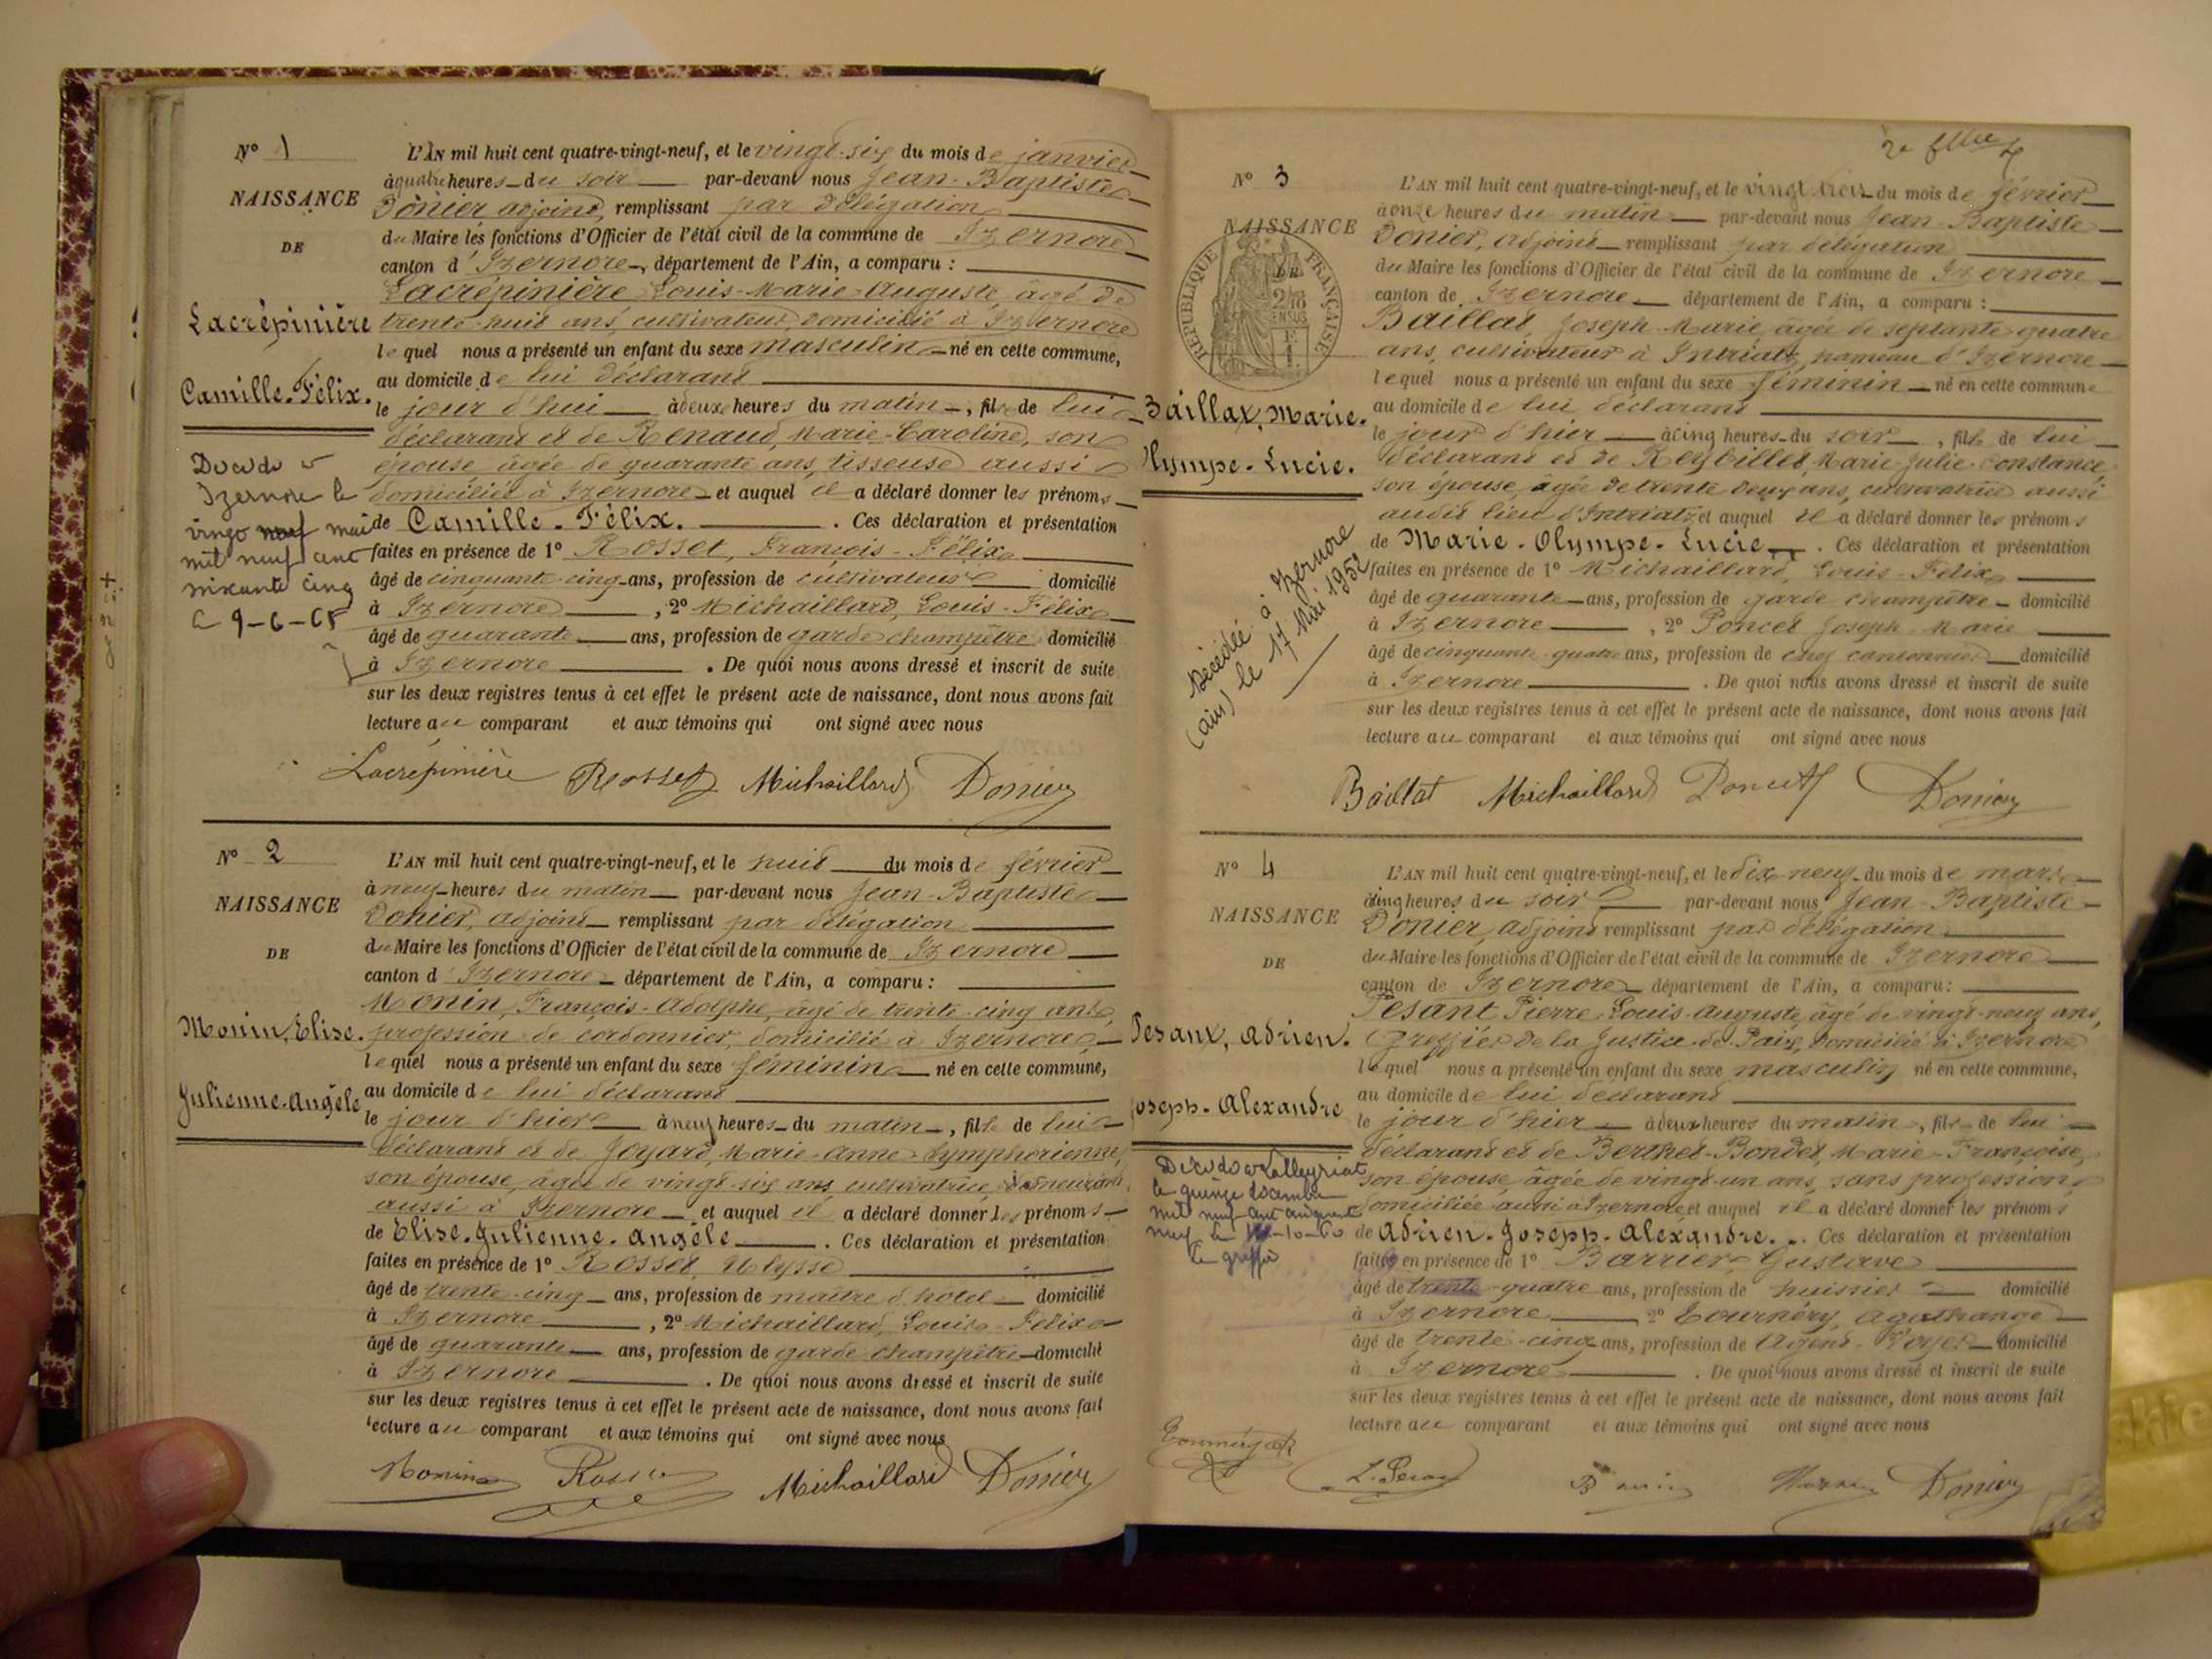 Nº 1
NAISSANCE
DE
Lacrépinière
Camille-Félix.
Izernore le
mil neuf cent
9-6-65
L'AN mil huit cent quatre-vingt-neuf, et le vingt-six du mois de janvier
à quatre heures du soir par-devant nous Jean-Baptiste
Donier adjoint, remplissant par délégation
du Maire les fonctions d'Officier de l'état civil de la commune de Izernore
canton d'Izernore, département de l'Ain, a comparu :
Lacrépinière Louis-Marie-Auguste, âgé de
trente-huit ans, cultivateur, domicilié à Izernore
lequel nous a présenté un enfant du sexe masculin né en cette commune,
au domicile de lui déclarant
le jour d'hui à deux heures du matin, fils de lui
déclarant et de Renaud, Marie-Caroline, son
épouse âgée de quarante ans, tisseuse aussi
domiciliée à Izernore et auquel il a déclaré donner les prénoms
de Camille-Félix. . Ces déclaration et présentation
faites en présence de 1º Rosset, François-Félix
âgé de cinquante-cinq ans, profession de cultivateur domicilié
à Izernore , 2º Michaillard, Louis-Félix
âgé de quarante ans, profession de garde champêtre domicilié
à Izernore . De quoi nous avons dressé et inscrit de suite
sur les deux registres tenus à cet effet le présent acte de naissance, dont nous avons fait
lecture au comparant et aux témoins qui ont signé avec nous
Lacrépinière Rosset Michaillard Donier
Nº 2
NAISSANCE
DE
Monin, Elise.
Julienne-Angèle
L'AN mil huit cent quatre-vingt-neuf, et le huit du mois de février
à neuf heures du matin par-devant nous Jean-Baptiste
Donier, adjoint remplissant par délégation
du Maire les fonctions d'Officier de l'état civil de la commune de Izernore
canton d'Izernore département de l'Ain, a comparu :
Monin, François-Adolphe, âgé de trente-cinq ans,
profession de cordonnier, domicilié à Izernore,
lequel nous a présenté un enfant du sexe féminin né en cette commune,
au domicile de lui déclarant
le jour d'hier à neuf heures du matin, fille de lui
déclarant et de Joyard, Marie-Anne Symphorienne,
son épouse, âgée de vingt-six ans, cultivatrice, demeurant
aussi à Izernore et auquel il a déclaré donner les prénoms
de Elise-Julienne-Angèle . Ces déclaration et présentation
faites en présence de 1º Rosset, Ulysse
âgé de trente-cinq ans, profession de maître d'hôtel domicilié
à Izernore , 2º Michaillard, Louis-Félix
âgé de quarante ans, profession de garde champêtre domicilié
à Izernore . De quoi nous avons dressé et inscrit de suite
sur les deux registres tenus à cet effet le présent acte de naissance, dont nous avons fait
lecture au comparant et aux témoins qui ont signé avec nous
Monin Michaillard Donier
Nº 3
NAISSANCE
DE
RÉPUBLIQUE FRANÇAISE
Baillat, Marie.
Olympe-Lucie.
Décédée à Izernore
(ain) le 17 Mai 1952
L'AN mil huit cent quatre-vingt-neuf, et le vingt trois du mois de février
à onze heures du matin par-devant nous Jean-Baptiste
Donier, adjoint remplissant par délégation
du Maire les fonctions d'Officier de l'état civil de la commune de Izernore
canton de Izernore département de l'Ain, a comparu :
Baillat, Joseph-Marie âgé de septante quatre
ans, cultivateur à Intriatz, hameau d'Izernore
lequel nous a présenté un enfant du sexe féminin né en cette commune
au domicile de lui déclarant
le jour d'hier à cinq heures du soir, fille de lui
déclarant et de Reybillet, Marie-Julie-Constance,
son épouse, âgée de trente deux ans, cultivatrice aussi
audit lieu d'Intriatz et auquel il a déclaré donner les prénoms
de Marie-Olympe-Lucie . Ces déclaration et présentation
faites en présence de 1º Michaillard, Louis-Félix
âgé de quarante ans, profession de garde champêtre domicilié
à Izernore , 2º Poncet Joseph Marie
âgé de cinquante-quatre ans, profession de chef cantonnier domicilié
à Izernore . De quoi nous avons dressé et inscrit de suite
sur les deux registres tenus à cet effet le présent acte de naissance, dont nous avons fait
lecture au comparant et aux témoins qui ont signé avec nous
Baillat Michaillard Poncet Donier
Nº 4
NAISSANCE
DE
Pesant, Adrien.
Joseph-Alexandre
le quinze décembre
le greffier
L'AN mil huit cent quatre-vingt-neuf, et le dix-neuf du mois de mars
à cinq heures du soir par-devant nous Jean-Baptiste
Donier, adjoint remplissant par délégation
du Maire les fonctions d'Officier de l'état civil de la commune de Izernore
canton de Izernore département de l'Ain, a comparu :
Pesant Pierre-Louis-Auguste, âgé de vingt-neuf ans,
Greffier de la Justice de Paix, domicilié à Izernore
lequel nous a présenté un enfant du sexe masculin né en cette commune,
au domicile de lui déclarant
le jour d'hier à deux heures du matin, fils de lui
déclarant et de Berthet-Bondet, Marie-Françoise,
son épouse, âgée de vingt-un ans, sans profession,
domiciliée aussi à Izernore et auquel il a déclaré donner les prénoms
de Adrien-Joseph-Alexandre. Ces déclaration et présentation
faites en présence de 1º Barrier Gustave
âgé de trente-quatre ans, profession de huissier domicilié
à Izernore 2º Tournéry, Agathange
âgé de trente-cinq ans, profession de Agent-Voyer domicilié
à Izernore . De quoi nous avons dressé et inscrit de suite
sur les deux registres tenus à cet effet le présent acte de naissance, dont nous avons fait
lecture au comparant et aux témoins qui ont signé avec nous
Donier